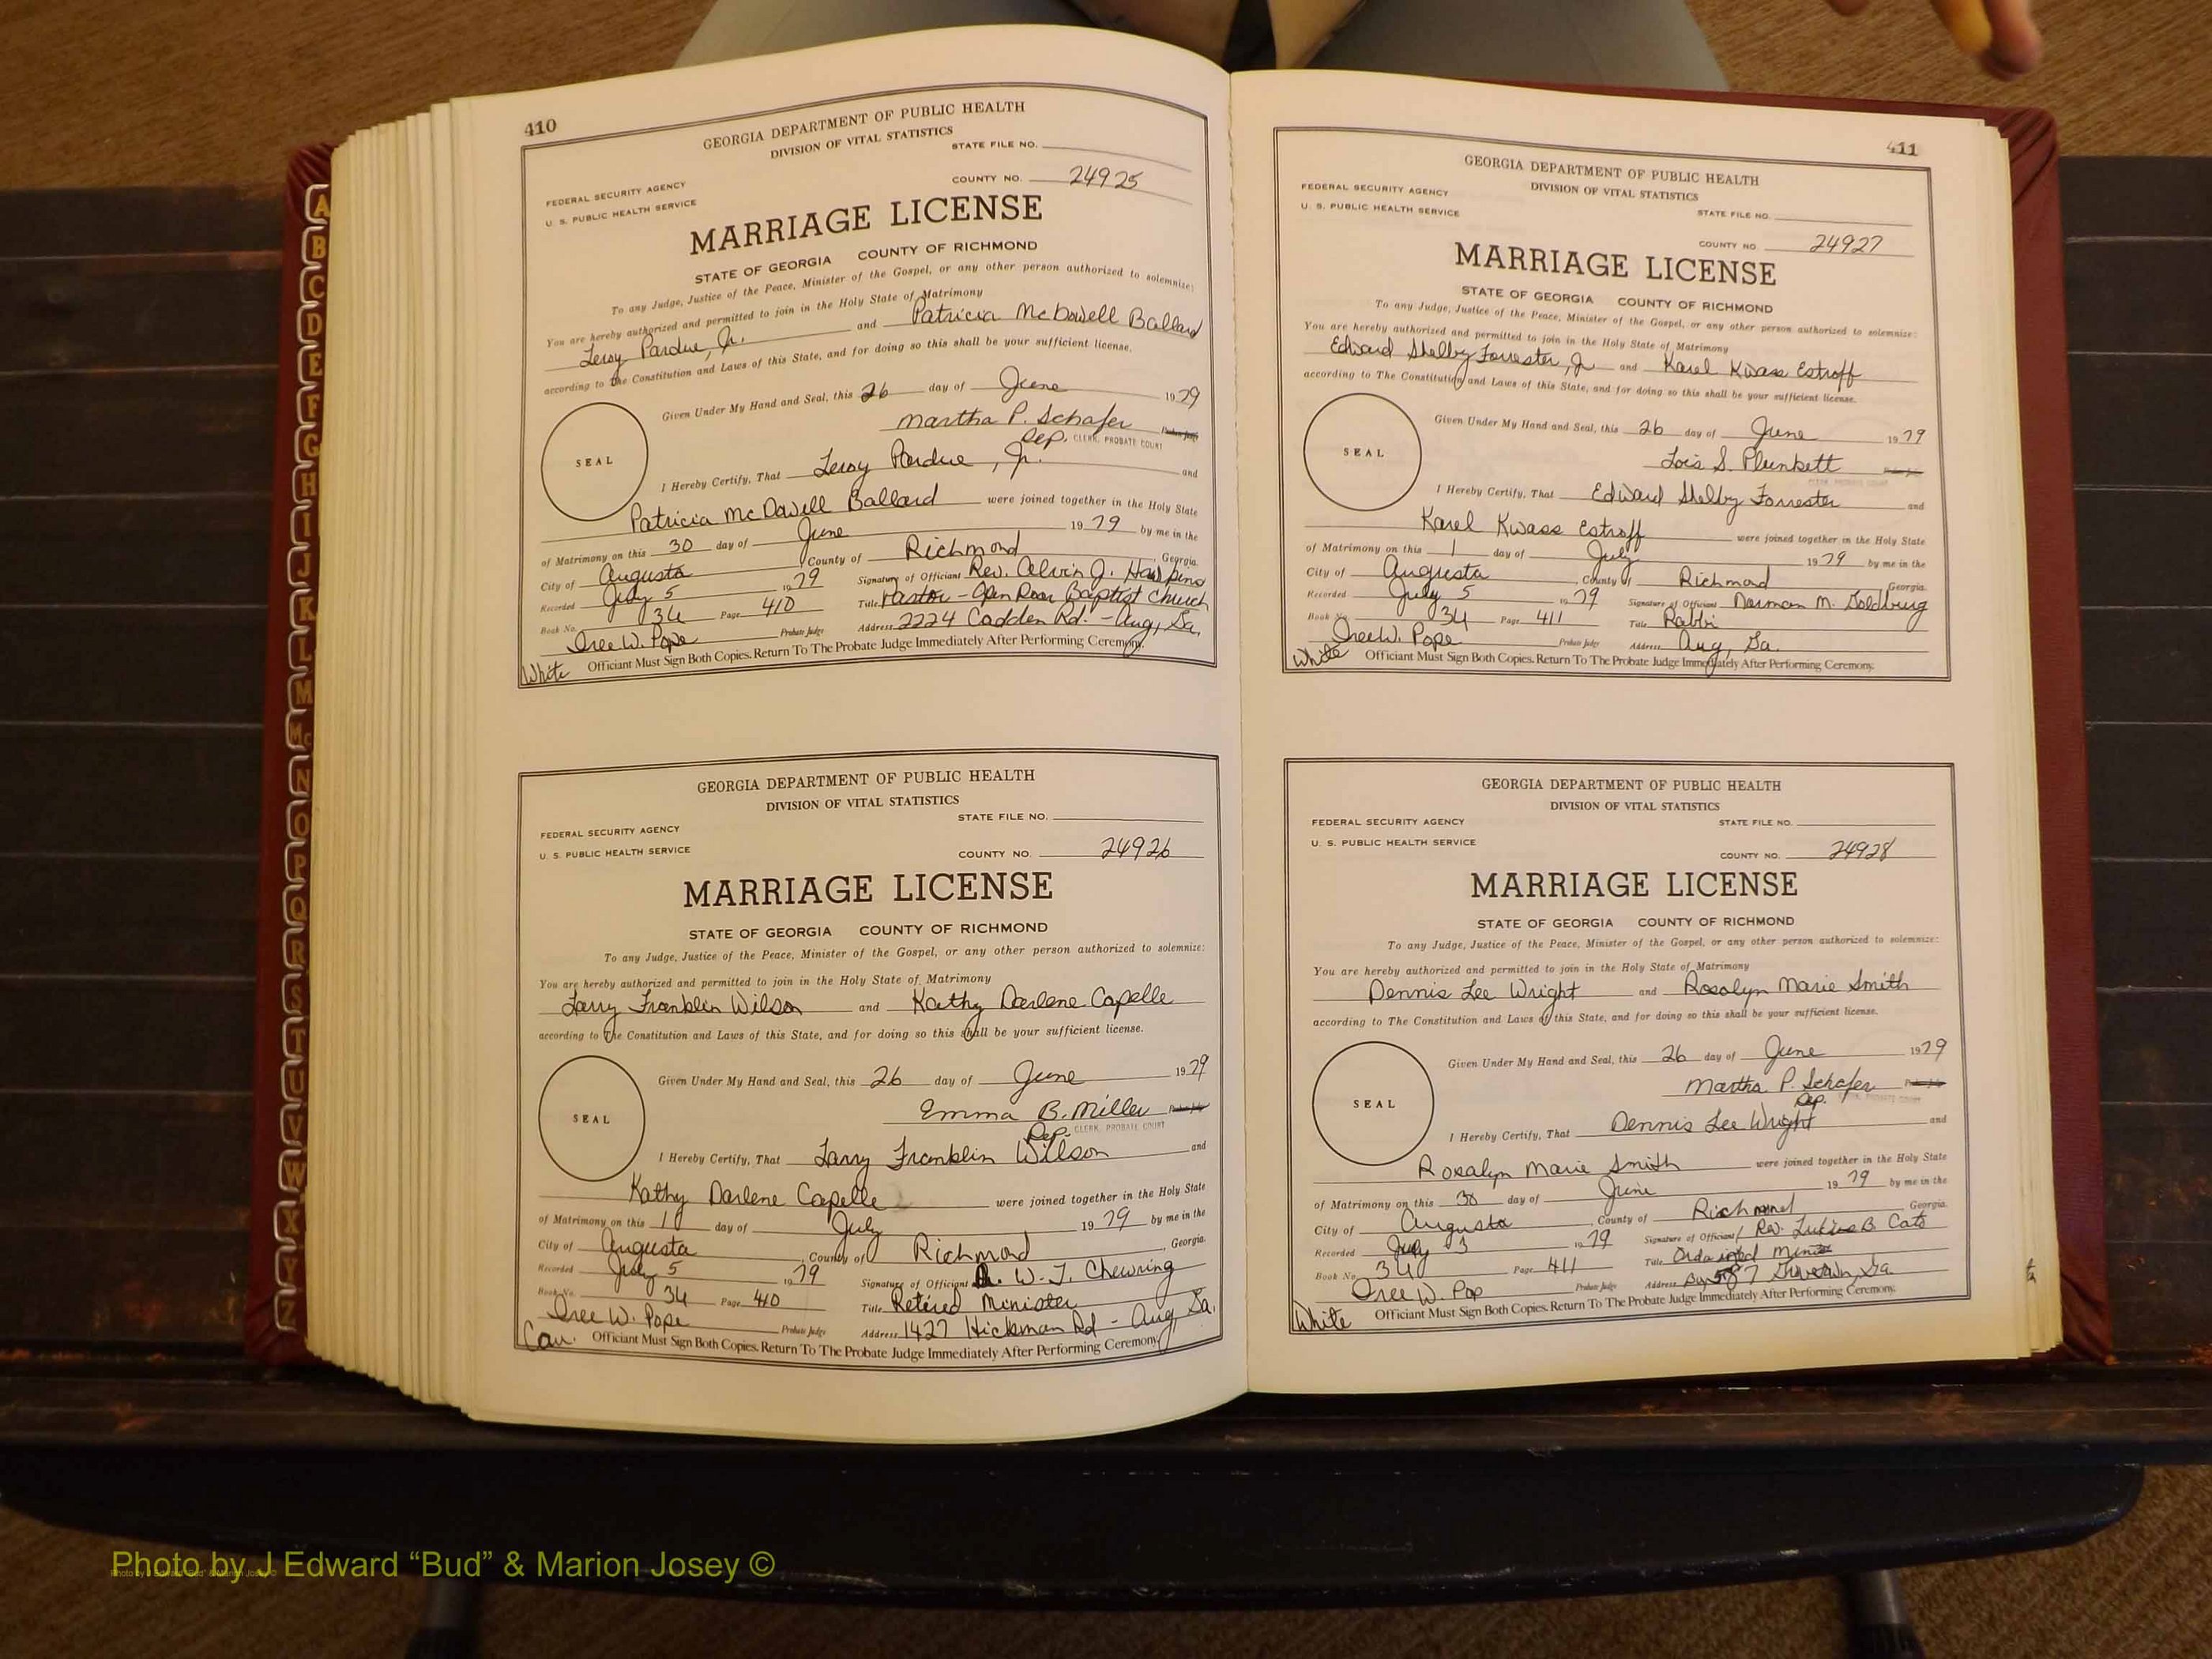 410
GEORGIA DEPARTMENT OF PUBLIC HEALTH
DIVISION OF VITAL STATISTICS
STATE FILE NO.
FEDERAL SECURITY AGENCY
COUNTY NO. 24925
U. S. PUBLIC HEALTH SERVICE
MARRIAGE LICENSE
STATE OF GEORGIA COUNTY OF RICHMOND
To any Judge, Justice of the Peace, Minister of the Gospel, or any other person authorized to solemnize:
You are hereby authorized and permitted to join in the Holy State of Matrimony
Leroy Pardue, Jr. and Patricia McDowell Ballard
according to the Constitution and Laws of this State, and for doing so this shall be your sufficient license.
Given Under My Hand and Seal, this 26 day of June 1979
Martha P. Schafer Probate Judge
Dep. CLERK, PROBATE COURT
SEAL
I Hereby Certify, That Leroy Pardue, Jr. and
Patricia McDowell Ballard were joined together in the Holy State
of Matrimony on this 30 day of June 1979 by me in the
City of Augusta, County of Richmond, Georgia.
Recorded July 5 1979 Signature of Officiant Rev. Alvin J. Hawkins
Book No. 34 Page 410 Title Pastor - Open Door Baptist Church
Iree W. Pope Probate Judge Address 2224 Cadden Rd. - Aug, Ga.
White Officiant Must Sign Both Copies. Return To The Probate Judge Immediately After Performing Ceremony.
GEORGIA DEPARTMENT OF PUBLIC HEALTH
DIVISION OF VITAL STATISTICS
STATE FILE NO.
FEDERAL SECURITY AGENCY
U. S. PUBLIC HEALTH SERVICE COUNTY NO. 24926
MARRIAGE LICENSE
STATE OF GEORGIA COUNTY OF RICHMOND
To any Judge, Justice of the Peace, Minister of the Gospel, or any other person authorized to solemnize:
You are hereby authorized and permitted to join in the Holy State of Matrimony
Larry Franklin Wilson and Kathy Darlene Capelle
according to The Constitution and Laws of this State, and for doing so this shall be your sufficient license.
Given Under My Hand and Seal, this 26 day of June 1979
Emma B. Miller Probate Judge
Dep. CLERK, PROBATE COURT
SEAL
I Hereby Certify, That Larry Franklin Wilson and
Kathy Darlene Capelle were joined together in the Holy State
of Matrimony on this 1 day of July 1979 by me in the
City of Augusta, County of Richmond, Georgia.
Recorded July 5 1979 Signature of Officiant W. T. Chewning
Book No. 34 Page 410 Title Retired Minister
Iree W. Pope Probate Judge Address 1427 Hickman Rd - Aug, Ga.
Cau. Officiant Must Sign Both Copies. Return To The Probate Judge Immediately After Performing Ceremony.
411
GEORGIA DEPARTMENT OF PUBLIC HEALTH
DIVISION OF VITAL STATISTICS
FEDERAL SECURITY AGENCY
U. S. PUBLIC HEALTH SERVICE STATE FILE NO.
COUNTY NO. 24927
MARRIAGE LICENSE
STATE OF GEORGIA COUNTY OF RICHMOND
To any Judge, Justice of the Peace, Minister of the Gospel, or any other person authorized to solemnize:
You are hereby authorized and permitted to join in the Holy State of Matrimony
Edward Shelby Forrester, Jr and Karel Kwass Estroff
according to The Constitution and Laws of this State, and for doing so this shall be your sufficient license.
Given Under My Hand and Seal, this 26 day of June 1979
Lois S. Plunkett Probate Judge
CLERK, PROBATE COURT
SEAL
I Hereby Certify, That Edward Shelby Forrester and
Karel Kwass Estroff were joined together in the Holy State
of Matrimony on this 1 day of July 1979 by me in the
City of Augusta, County of Richmond, Georgia.
Recorded July 5 1979 Signature of Officiant Norman M. Goldburg
Book No. 34 Page 411 Title Rabbi
Iree W. Pope Probate Judge Address Aug, Ga.
White Officiant Must Sign Both Copies. Return To The Probate Judge Immediately After Performing Ceremony.
GEORGIA DEPARTMENT OF PUBLIC HEALTH
DIVISION OF VITAL STATISTICS
FEDERAL SECURITY AGENCY STATE FILE NO.
U. S. PUBLIC HEALTH SERVICE
COUNTY NO. 24928
MARRIAGE LICENSE
STATE OF GEORGIA COUNTY OF RICHMOND
To any Judge, Justice of the Peace, Minister of the Gospel, or any other person authorized to solemnize:
You are hereby authorized and permitted to join in the Holy State of Matrimony
Dennis Lee Wright and Rosalyn Marie Smith
according to The Constitution and Laws of this State, and for doing so this shall be your sufficient license.
Given Under My Hand and Seal, this 26 day of June 1979
Martha P. Schafer Probate Judge
Dep. CLERK, PROBATE COURT
SEAL
I Hereby Certify, That Dennis Lee Wright and
Rosalyn Marie Smith were joined together in the Holy State
of Matrimony on this 30 day of June 1979 by me in the
City of Augusta, County of Richmond, Georgia.
Recorded July 3 1979 Signature of Officiant Rev. B. Cato
Book No. 34 Page 411 Title Ordained
Iree W. Pop Probate Judge Address Ga.
White Officiant Must Sign Both Copies. Return To The Probate Judge Immediately After Performing Ceremony.
A
B
C
D
E
F
G
H
I
J
K
L
M
Mc
N
O
P
Q
R
S
T
U
V
W
X
Y
Z
Photo by J Edward “Bud” & Marion Josey ©